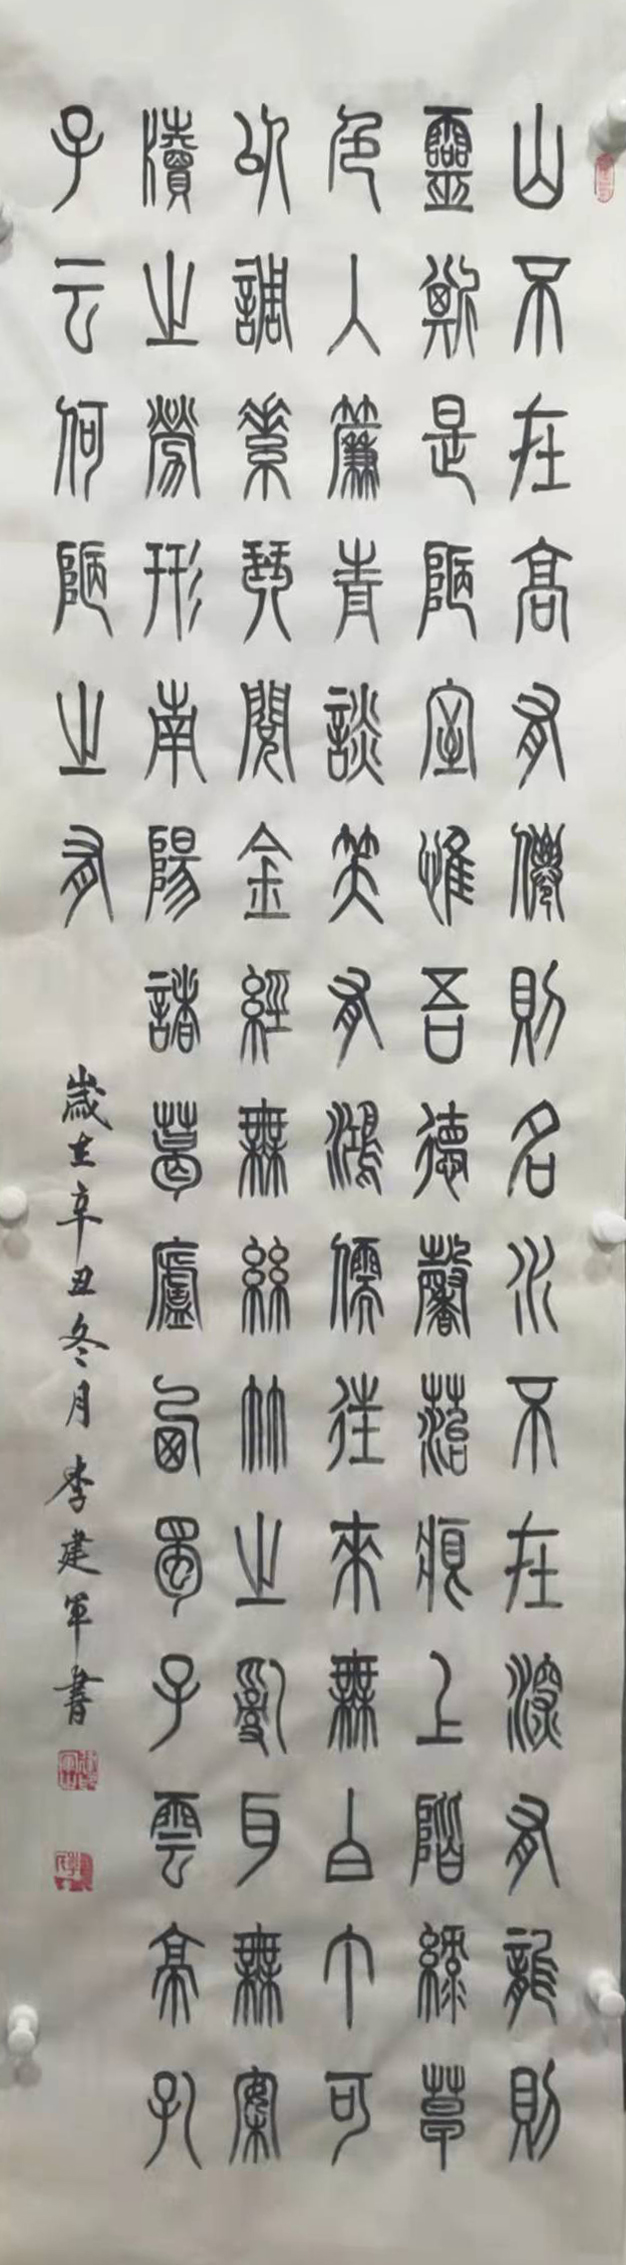 山不在高有僊則名水不在深有龍則
靈斯是陋室惟吾德馨菭痕上階綠草
色入簾青談笑有鴻儒往來無白丁可
以調素琴閱金經無絲竹之亂耳無案
瀆之勞形南陽諸葛廬西蜀子雲亭孔
子云何陋之有
歲在辛丑冬月李建軍書